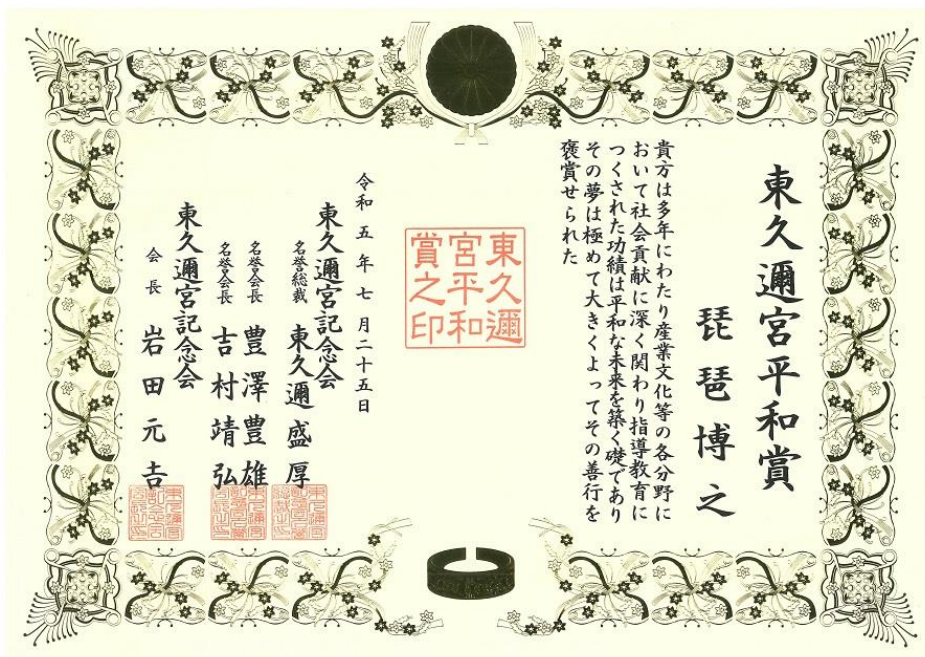 東久邇宮平和賞
琵琶博之
貴方は多年にわたり産業文化等の各分野に
おいて社会貢献に深く関わり指導教育に
つくされた功績は平和な未来を築く礎であり
その夢は極めて大きくよってその善行を
褒賞せられた
東久邇
宮平和
賞之印
令和五年七月二十五日
東久邇宮記念会
名誉総裁 東久邇盛厚
名誉会長 豊澤豊雄
名誉会長 吉村靖弘
東久邇宮記念会
会長 岩田元吉